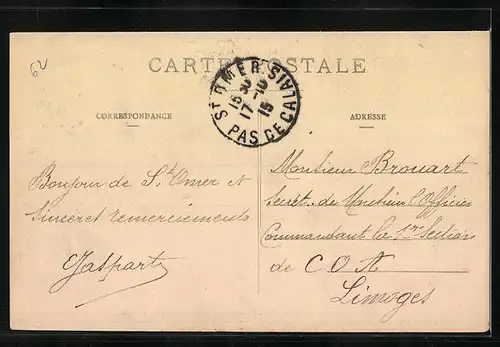 62
CARTE POSTALE
ST OMER PAS DE CALAIS
17 -10
15
CORRESPONDANCE
ADRESSE
Bonjour de St Omer et
sinceret remerciements
Jaspart
Monsieur Brouart
Secret. de Monsieur l'Officier
Commandant la 1re Section
de C O A
Limoges